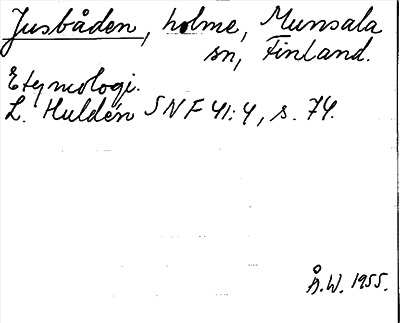 Jusbåden, holme, Munsala
sn, Finland.
Etymologi.
L. Huldén SNF 41:4, s. 74.
Å.W. 1955.